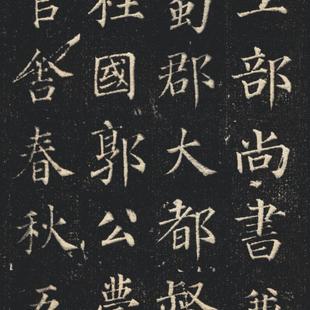 工部尚書
蜀郡大都督
柱國郭公
官舍春秋五